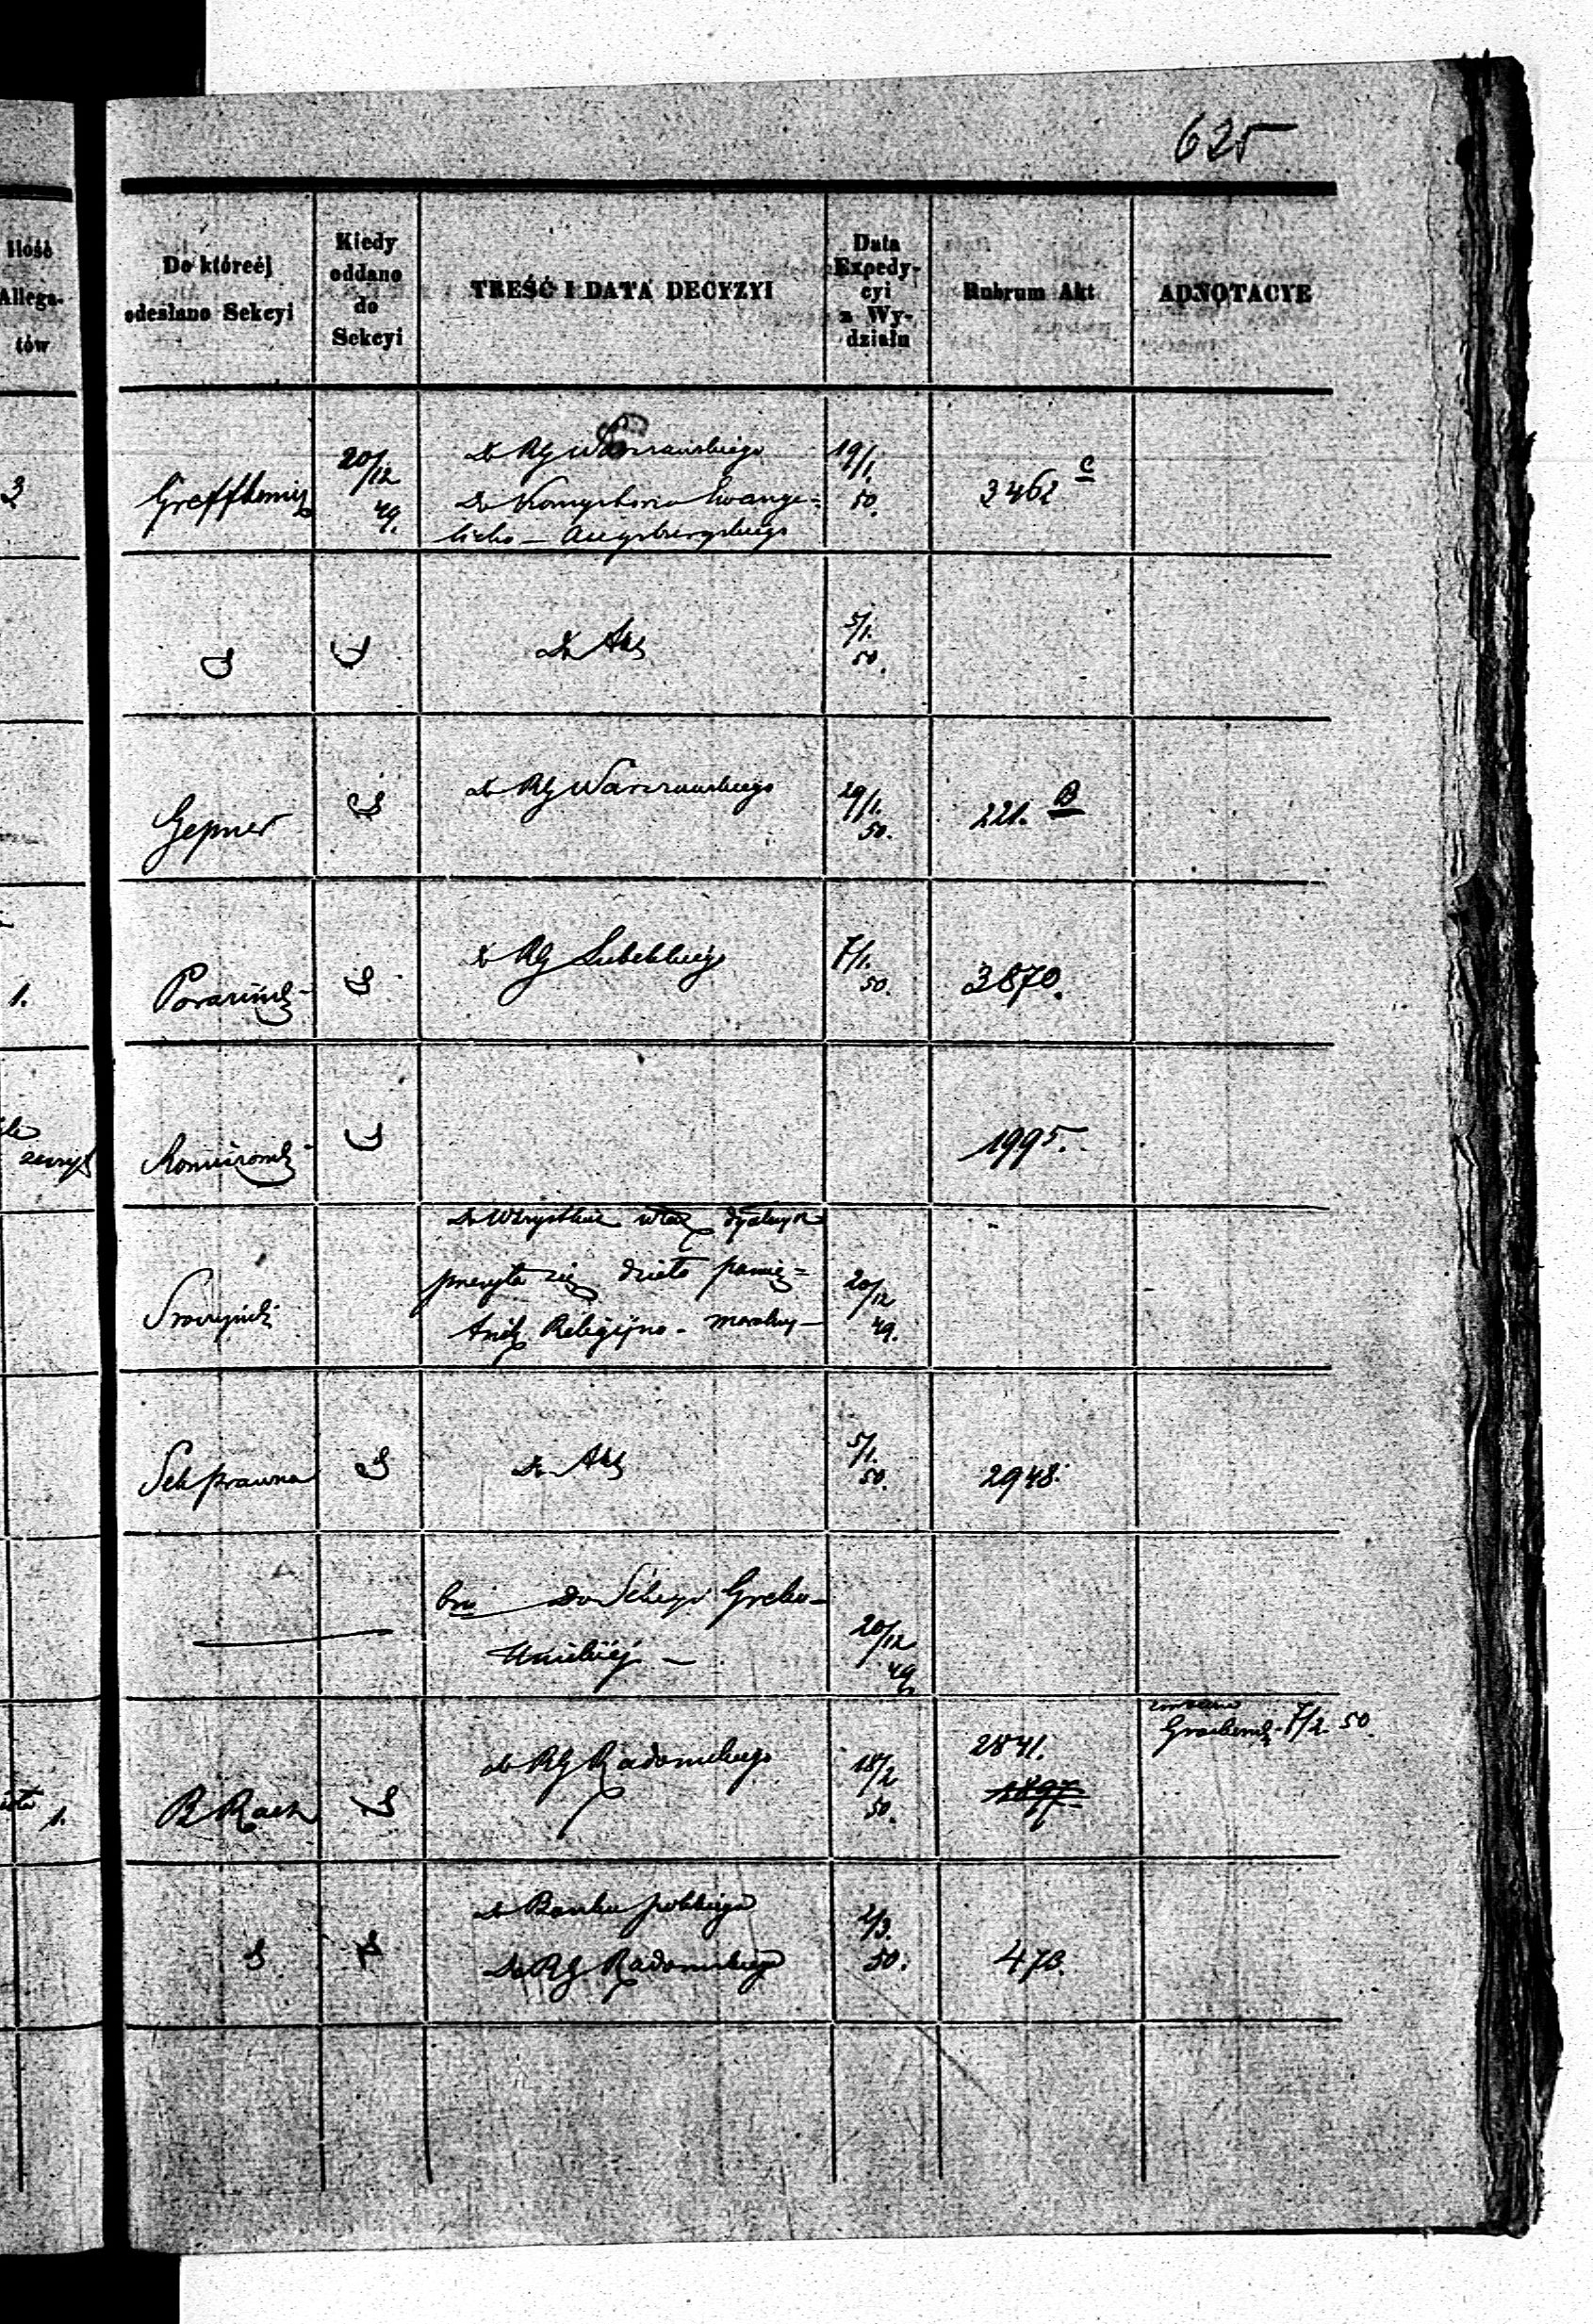 625
Ilość
Allega-
tów
Do któreéj
odesłano Sekcyi
Kiedy
oddano
do
Sekcyi
TREŚĆ I DATA DECYZYI
Data
Expedy-
cyi
z Wy-
działu
Rubrum Akt
ADNOTACYE
3
20/12
49.
Do RG Warszawskiego
Do Konsystorza Ewange=
licko - Augsburgskiego
19/1.
50.
3462 C
Do Akt
5/1.
50.
Gepner
do RG Warszawskiego
29/1.
50.
221. B
1.
do RG Lubelskiego
7/1.
50.
3870.
1995.
Do Wszystkich
przesyła się dzieło pamię=
Religijno - moralny
20/12
49.
Sek prawna
Do Akt
5/1.
50.
2948.
bm Do Sekcyi Greko-
Unickiéj -
20/12
49
1.
R Rach
do RG Radomskiego
18/2
50.
2841.
7/2 50.
Do Banku polskiego
Do RG Radomskiego
2/3.
50.
473.